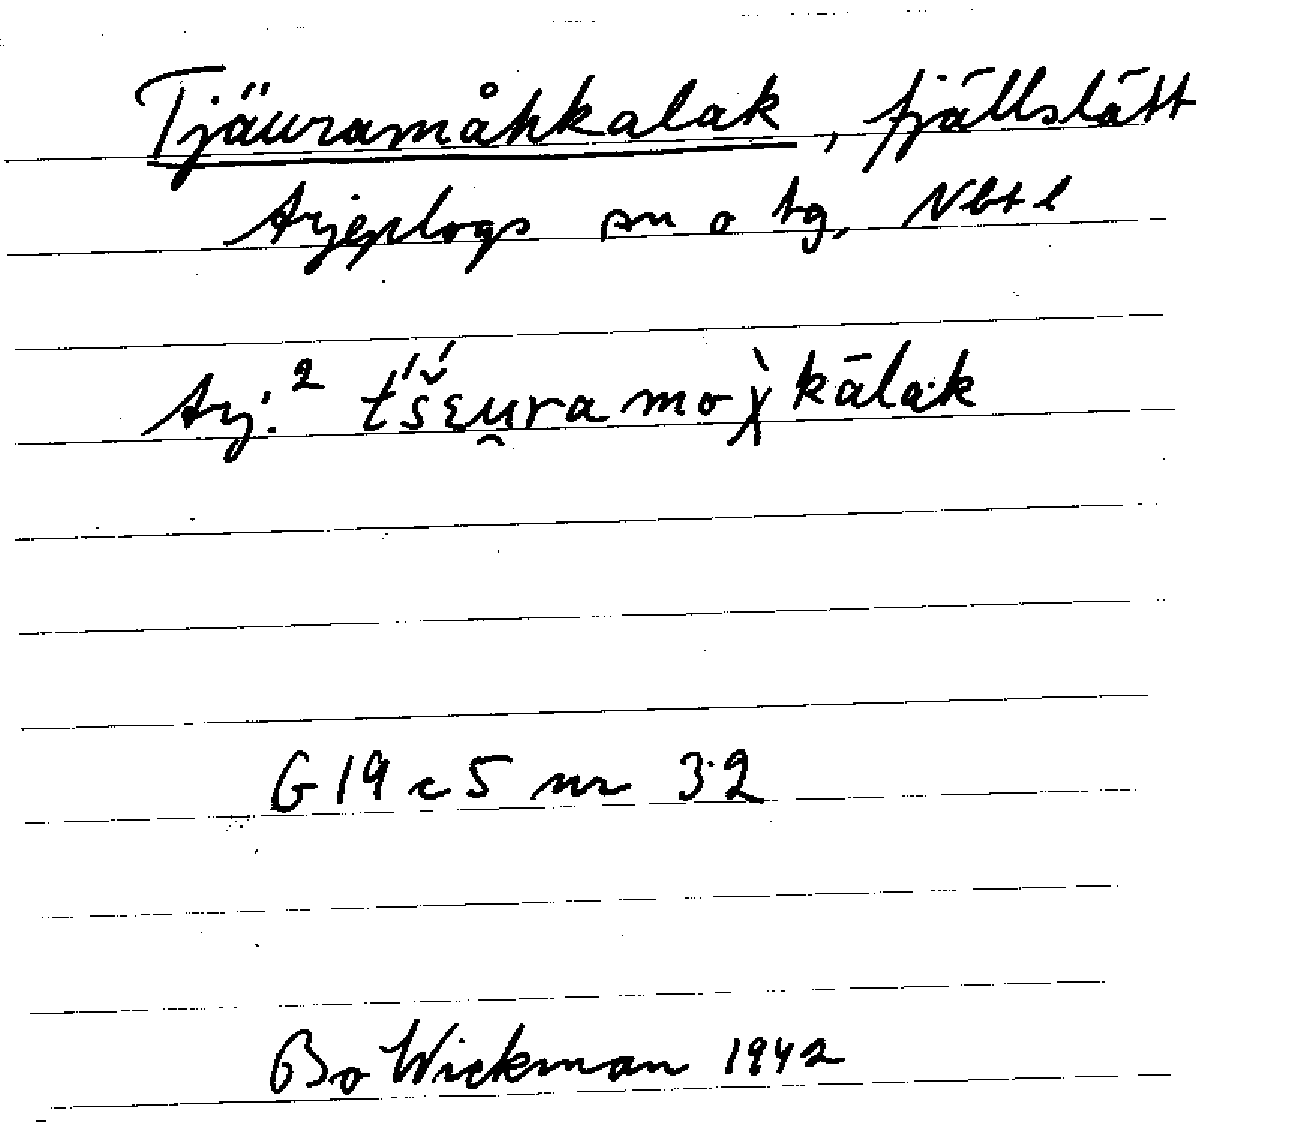 Tjäuramåhkalak, fjällslätt
Arjeplogs sn o tg, Nbt l
Arj.² t́š́ɛu̯ramoχ̀kālak
G 19 c 5 nr 32
Bo Wickman 1942